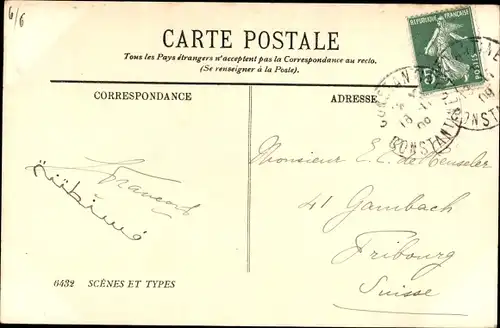 6/6
CARTE POSTALE
Tous les Pays étrangers n'acceptent pas la Correspondance au recto.
(Se renseigner à la Poste).
REPUBLIQUE FRANÇAISE
5
POSTES
CONSTANTINE
CONSTANTINE
09
CORRESPONDANCE
ADRESSE
Monsieur E. C. de Heuseler
41 Gambach
Fribourg
Suisse
قسنطينة
6432 SCÈNES ET TYPES